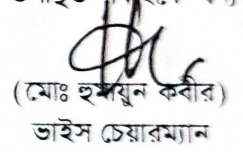 (মোঃ হুমায়ুন কবীর)
ভাইস চেয়ারম্যান